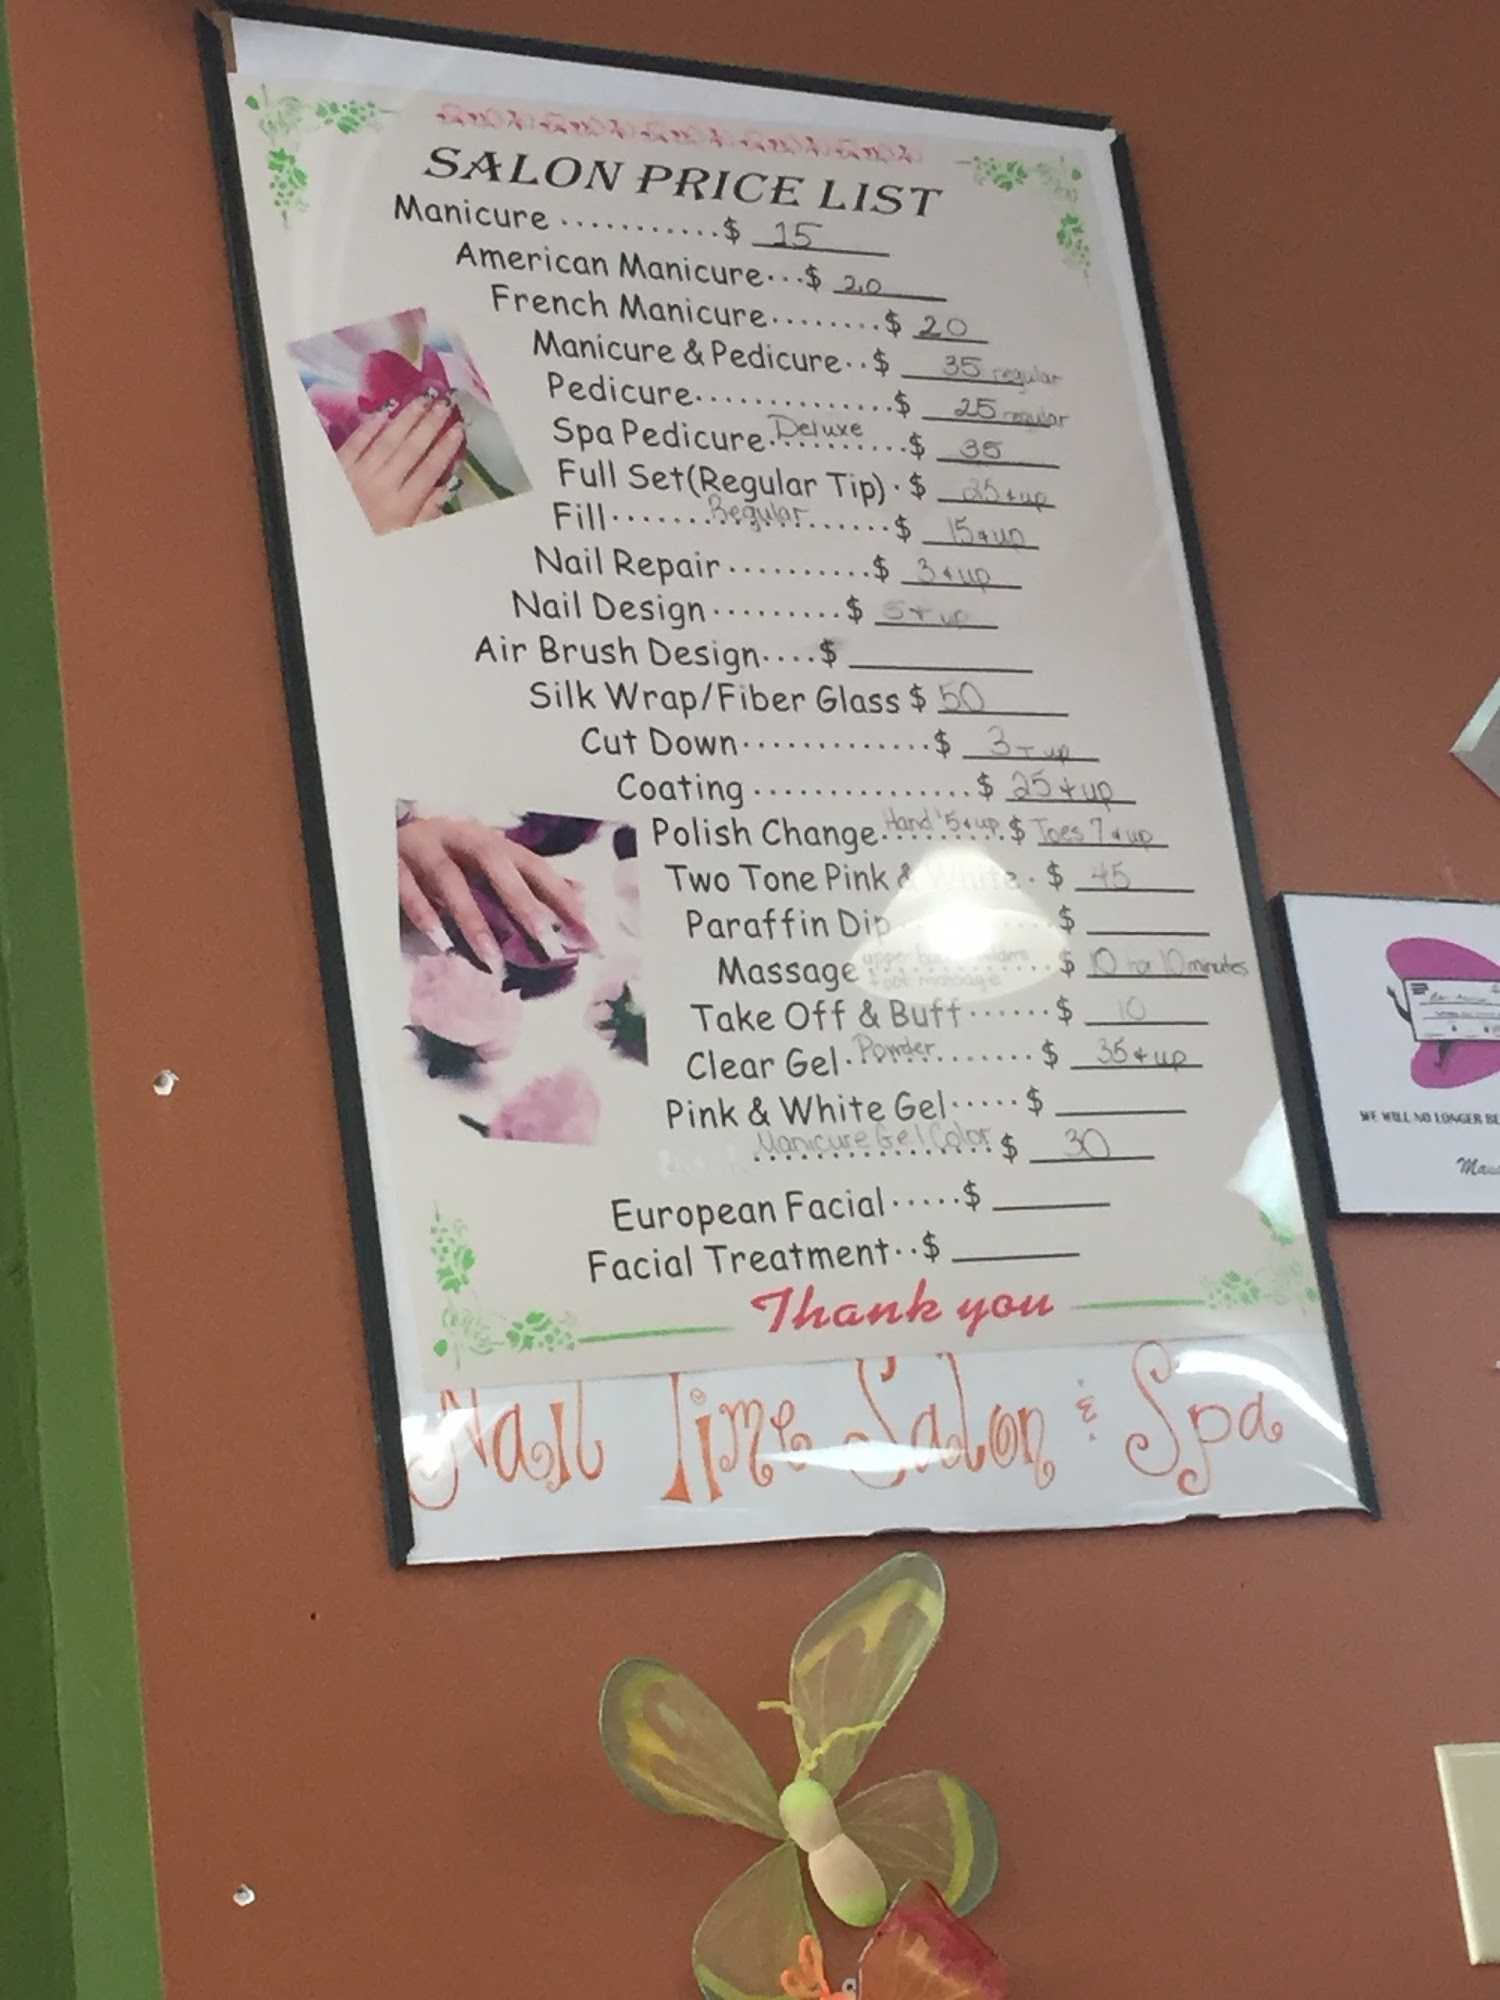 SALON PRICE LIST
Manicure ...........$ 15
American Manicure...$ 20
French Manicure........$ 20
Manicure & Pedicure..$ 35 regular
Pedicure..............$ 25 regular
Spa Pedicure Deluxe ..........$ 35
Full Set(Regular Tip) . $ 25 & up
Fill....... Regular .......$ 15 & up
Nail Repair ..........$ 3 & up
Nail Design .........$ 5 + up
Air Brush Design....$
Silk Wrap/Fiber Glass $ 50
Cut Down.............$ 3 + up
Coating ...............$ 25 & up
Polish Change Hand 5 & up $ Toes 7 & up
Two Tone Pink & White . $ 45
Paraffin Dip ......$
Massage upper foot massage $ 10 for 10 minutes
Take Off & Buff......$ 10
Clear Gel. Powder ........$ 35 & up
Pink & White Gel.....$
Manicure Gel Color $ 30
European Facial.....$
Facial Treatment..$
Thank you
Nail Time Salon & Spa
WE WILL NO LONGER BE